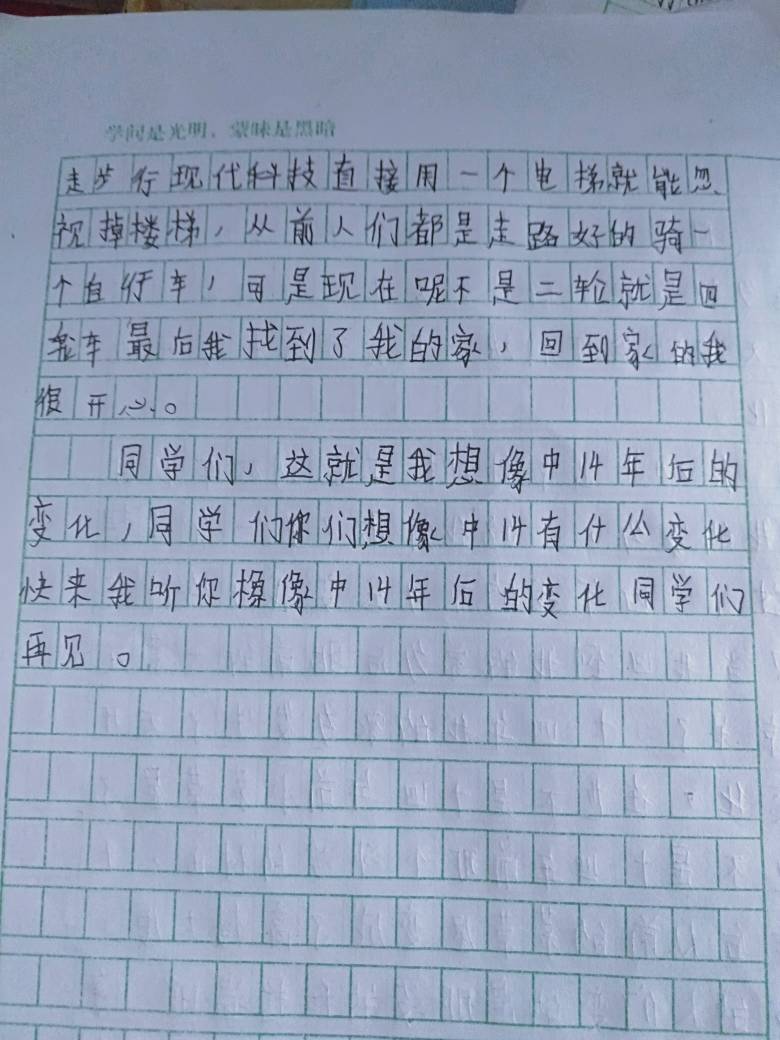 学问是光明，蒙昧是黑暗
走步行现代科技直接用一个电梯就能忽
视掉楼梯，从前人们都是走路好的骑一
个自行车，可是现在呢不是二轮就是四
轮车最后我找到了我的家，回到家的我
很开心。
同学们，这就是我想像中14年后的
变化，同学们你们想像中14有什么变化
快来我听你橡像中14年后的变化同学们
再见。